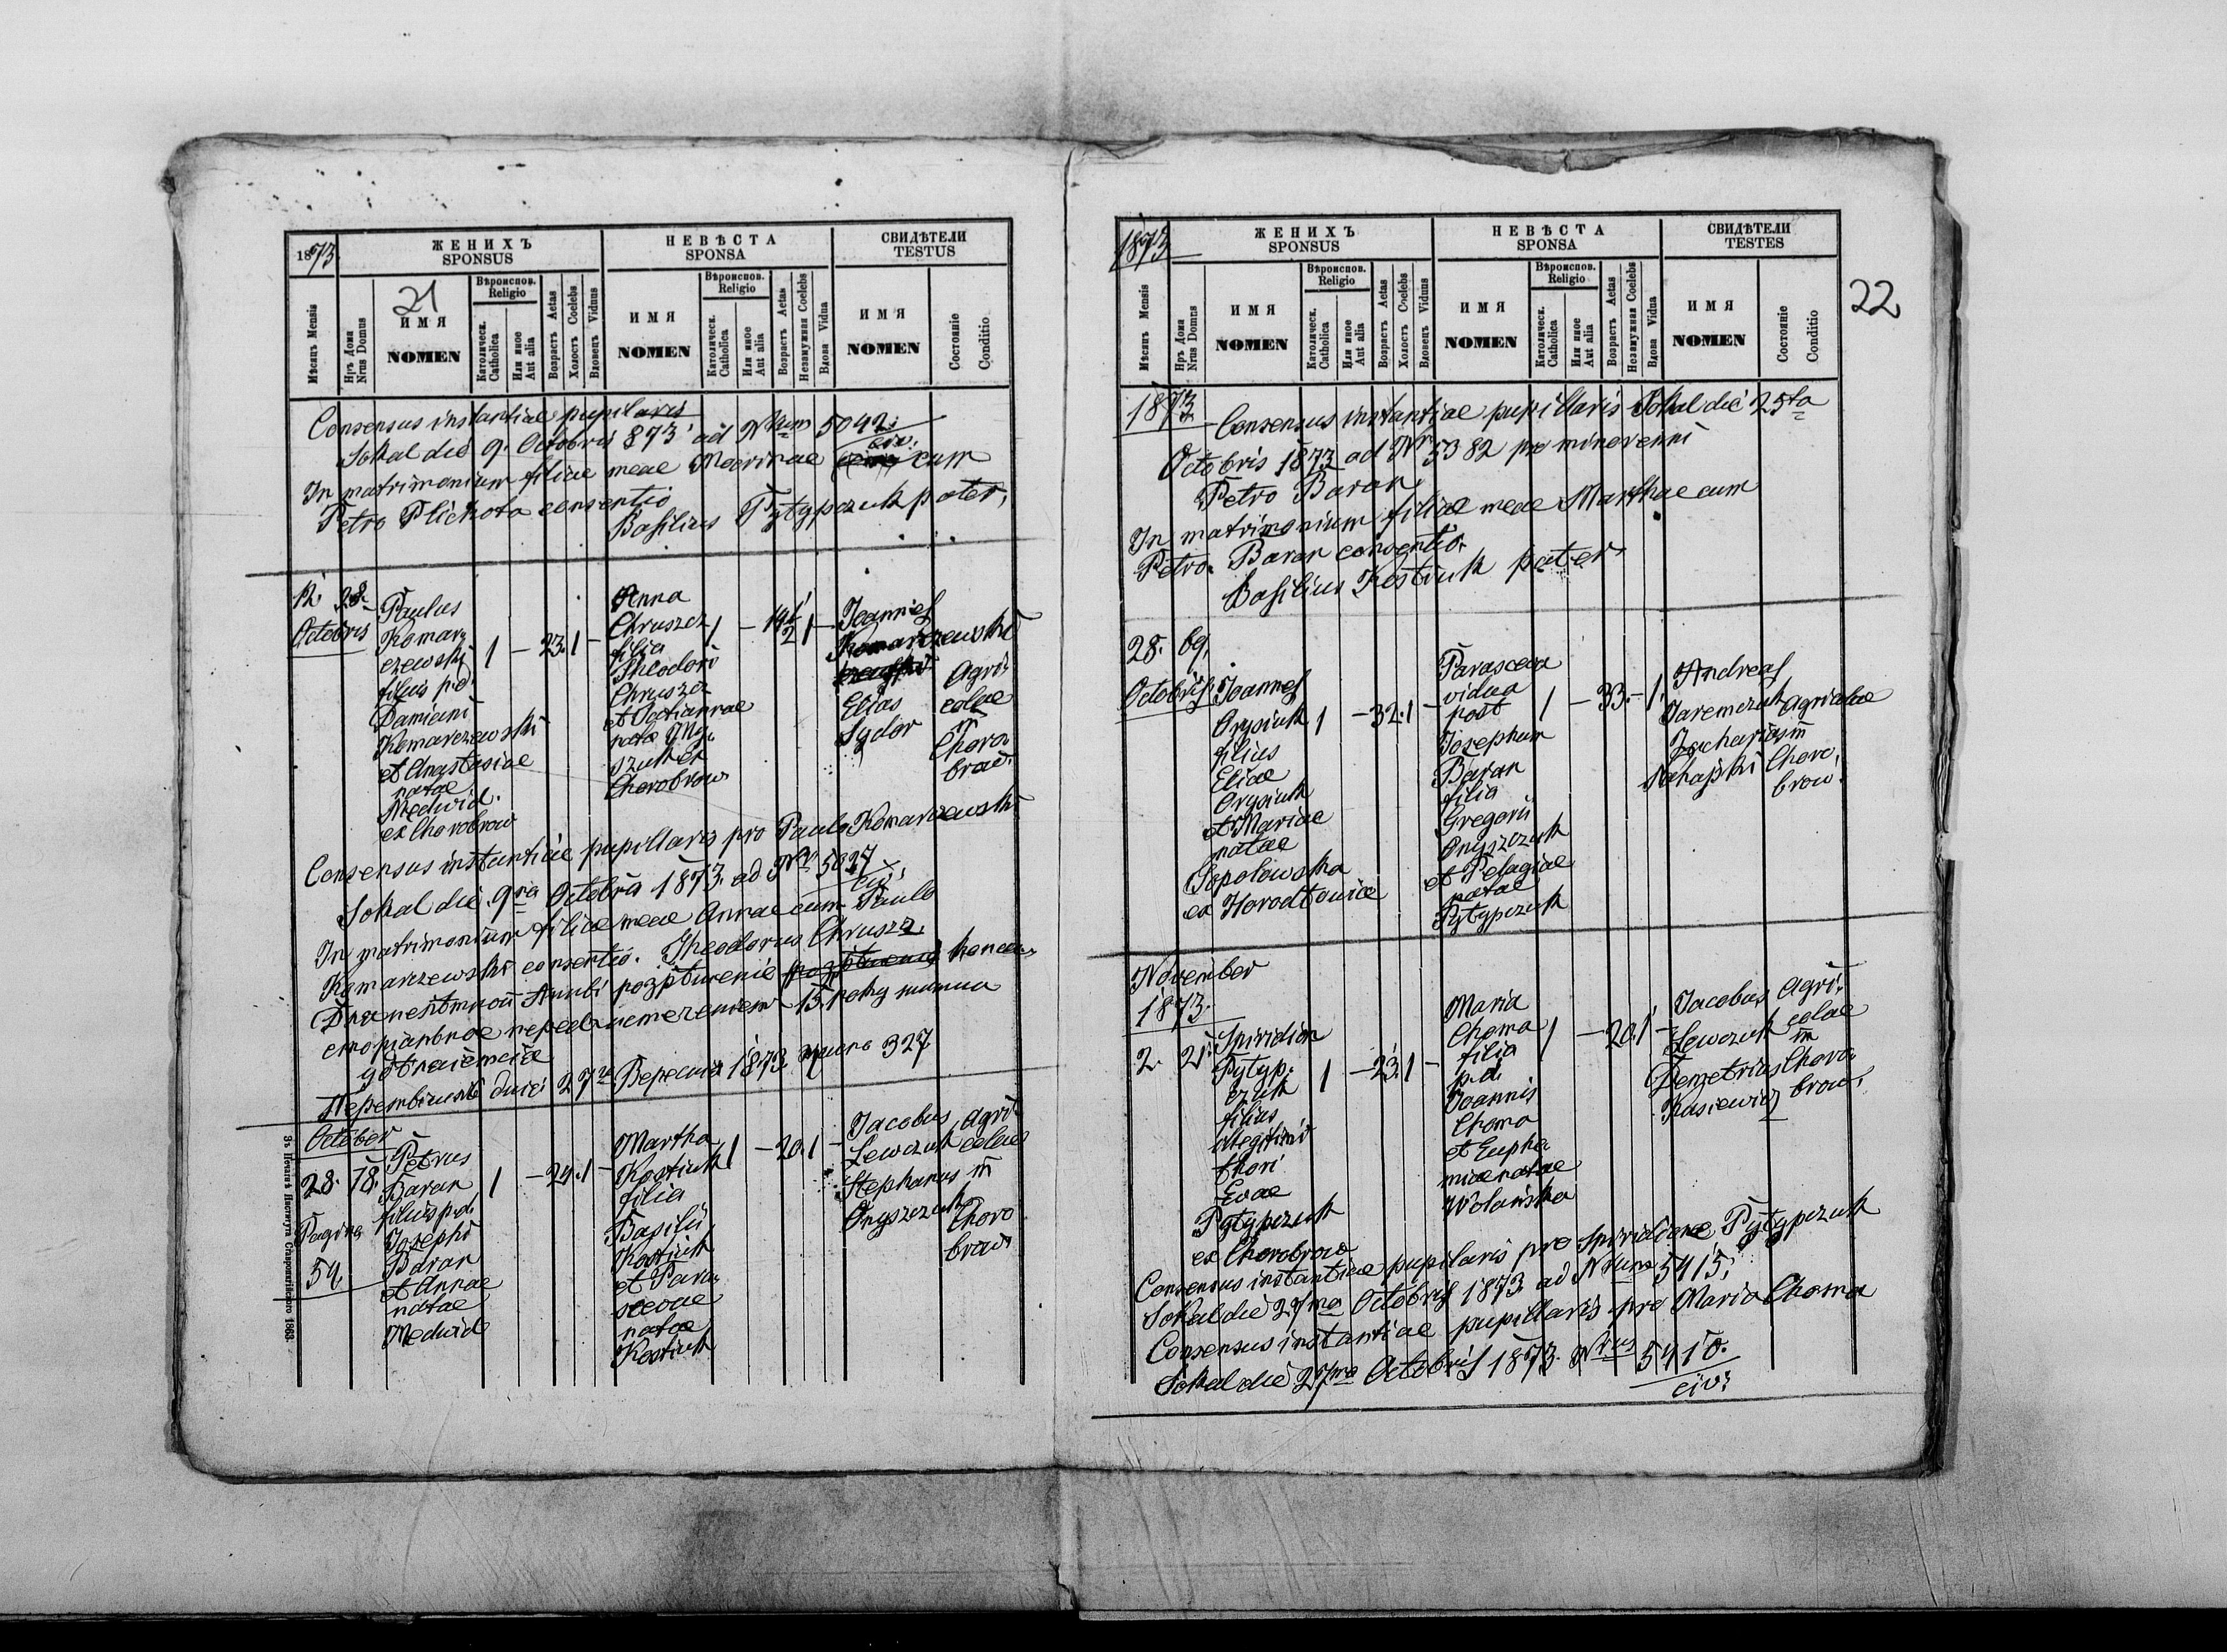 1873.
ЖЕНИХЪ
SPONSUS
НЕВѢСТА
SPONSA
СВИДѢТЕЛИ
TESTUS
21
Мѣсяцъ Mensis
Нръ Дома
Nrus Domus
ИМЯ
NOMEN
Вѣроиспов.
Religio
Католическ.
Catholica
Или иное
Aut alia
Возрастъ Aetas
Холостъ Coelebs
Вдовецъ Viduus
ИМЯ
NOMEN
Вѣроиспов.
Religio
Католическ.
Catholica
Или иное
Aut alia
Возрастъ Aetas
Незамужная Coelebs
Вдова Vidua
ИМЯ
NOMEN
Состоянie
Conditio
Consensus instantiae pupilaris
Sokal die 9. Octobris 873 ad Nrum 5042.
civ.
In matrimonium filiae meae Marinae cum
Petro Plichota consentio
Basilius Pytypczuk pater,
12. 28.
Octobris
Paulus
Komar
czewski
filius p.d.
Damiani
Komarczewski
et Anastasiae
natae
Medwid.
ex Chorobrow
1 — 23. 1 —
Anna
Chruszcz
filia
Theodori
Chruszcz
et Tatiannae
natae
Chorobrow
1 — 19 1/2 1 —
Joannes
Komarczewski
Elias
Sydor
Agri
colae
in
Choro
brow.
Consensus instantiae pupillaris pro Paulo Komarczewski
Sokal die 9na Octobris 1873. ad Nr. 5027
civ.
In matrimonium filiae meae Annae cum Paulo
Komarczewski consentio. Theodorus Chruszcz.
27 Вересня 1873 327
October
28. 78.
Pagina
54.
Petrus
Baran
filius p.d.
Josephi
Baran
et Annae
natae
Medwid
1 — 24. 1 —
Martha
Kostiuk
filia
Basilii
Kostiuk
et Para
scevae
natae
Kostiuk
1 — 20. 1 —
Jacobus
Lewczuk
Stephanus
Onyszczuk
Agri
colae
in
Choro
brow
Въ Печатнѣ Института Ставропигійского 1863.
1873
ЖЕНИХЪ
SPONSUS
НЕВѢСТА
SPONSA
СВИДѢТЕЛИ
TESTES
22
Мѣсяцъ Mensis
Нръ Дома
Nrus Domus
ИМЯ
NOMEN
Вѣроиспов.
Religio
Католическ.
Catholica
Или иное
Aut alia
Возрастъ Aetas
Холостъ Coelebs
Вдовецъ Viduus
ИМЯ
NOMEN
Вѣроиспов.
Religio
Католическ.
Catholica
Или иное
Aut alia
Возрастъ Aetas
Незамужная Coelebs
Вдова Vidua
ИМЯ
NOMEN
Состоянie
Conditio
1873 Consensus instantiae pupillaris Sokal die 25ta
Octobris 1873 ad Nr 5382 pro minorenni
Petro Baran
In matrimonium filiae meae Marthae cum
Petro Baran consentio.
Basilius Kostiuk pater
28. 69.
Octobris
Joannes
Orysiuk
filius
Eliae
Orysiuk
et Mariae
natae
Sopolowska
ex Horodlowice
1 — 32. 1 —
Parasceva
vidua
post
Josephum
Baran
filia
Gregorii
Onyszczuk
et Pelagiae
natae
Pytypczuk
1 — 33. — 1.
Andreas
Jaremczuk
Zacharias
Sahajski
Agricolae
in
Choro
brow.
November
1873.
2. 21.
Spiridion
Pytyp
czuk
filius
illegitimi
thori
Evae
Pytypczuk
ex Chorobrow
1 — 23. 1 —
Maria
Choma
filia
p.d.
Joannis
Choma
et Euphe
miae natae
Wolańska
1 — 20. 1 —
Jacobus
Lewczuk
Demetrius
Kusiewicz
Agri
colae
in
Choro
brow.
Consensus instantiae pupilaris pro Spiridione Pytypczuk
Sokal die 27ma Octobris 1873 ad Nrum 5415;
Consensus instantiae pupillaris pro Maria Choma
Sokal die 27ma Octobris 1873. Nrus 5410.
civ.